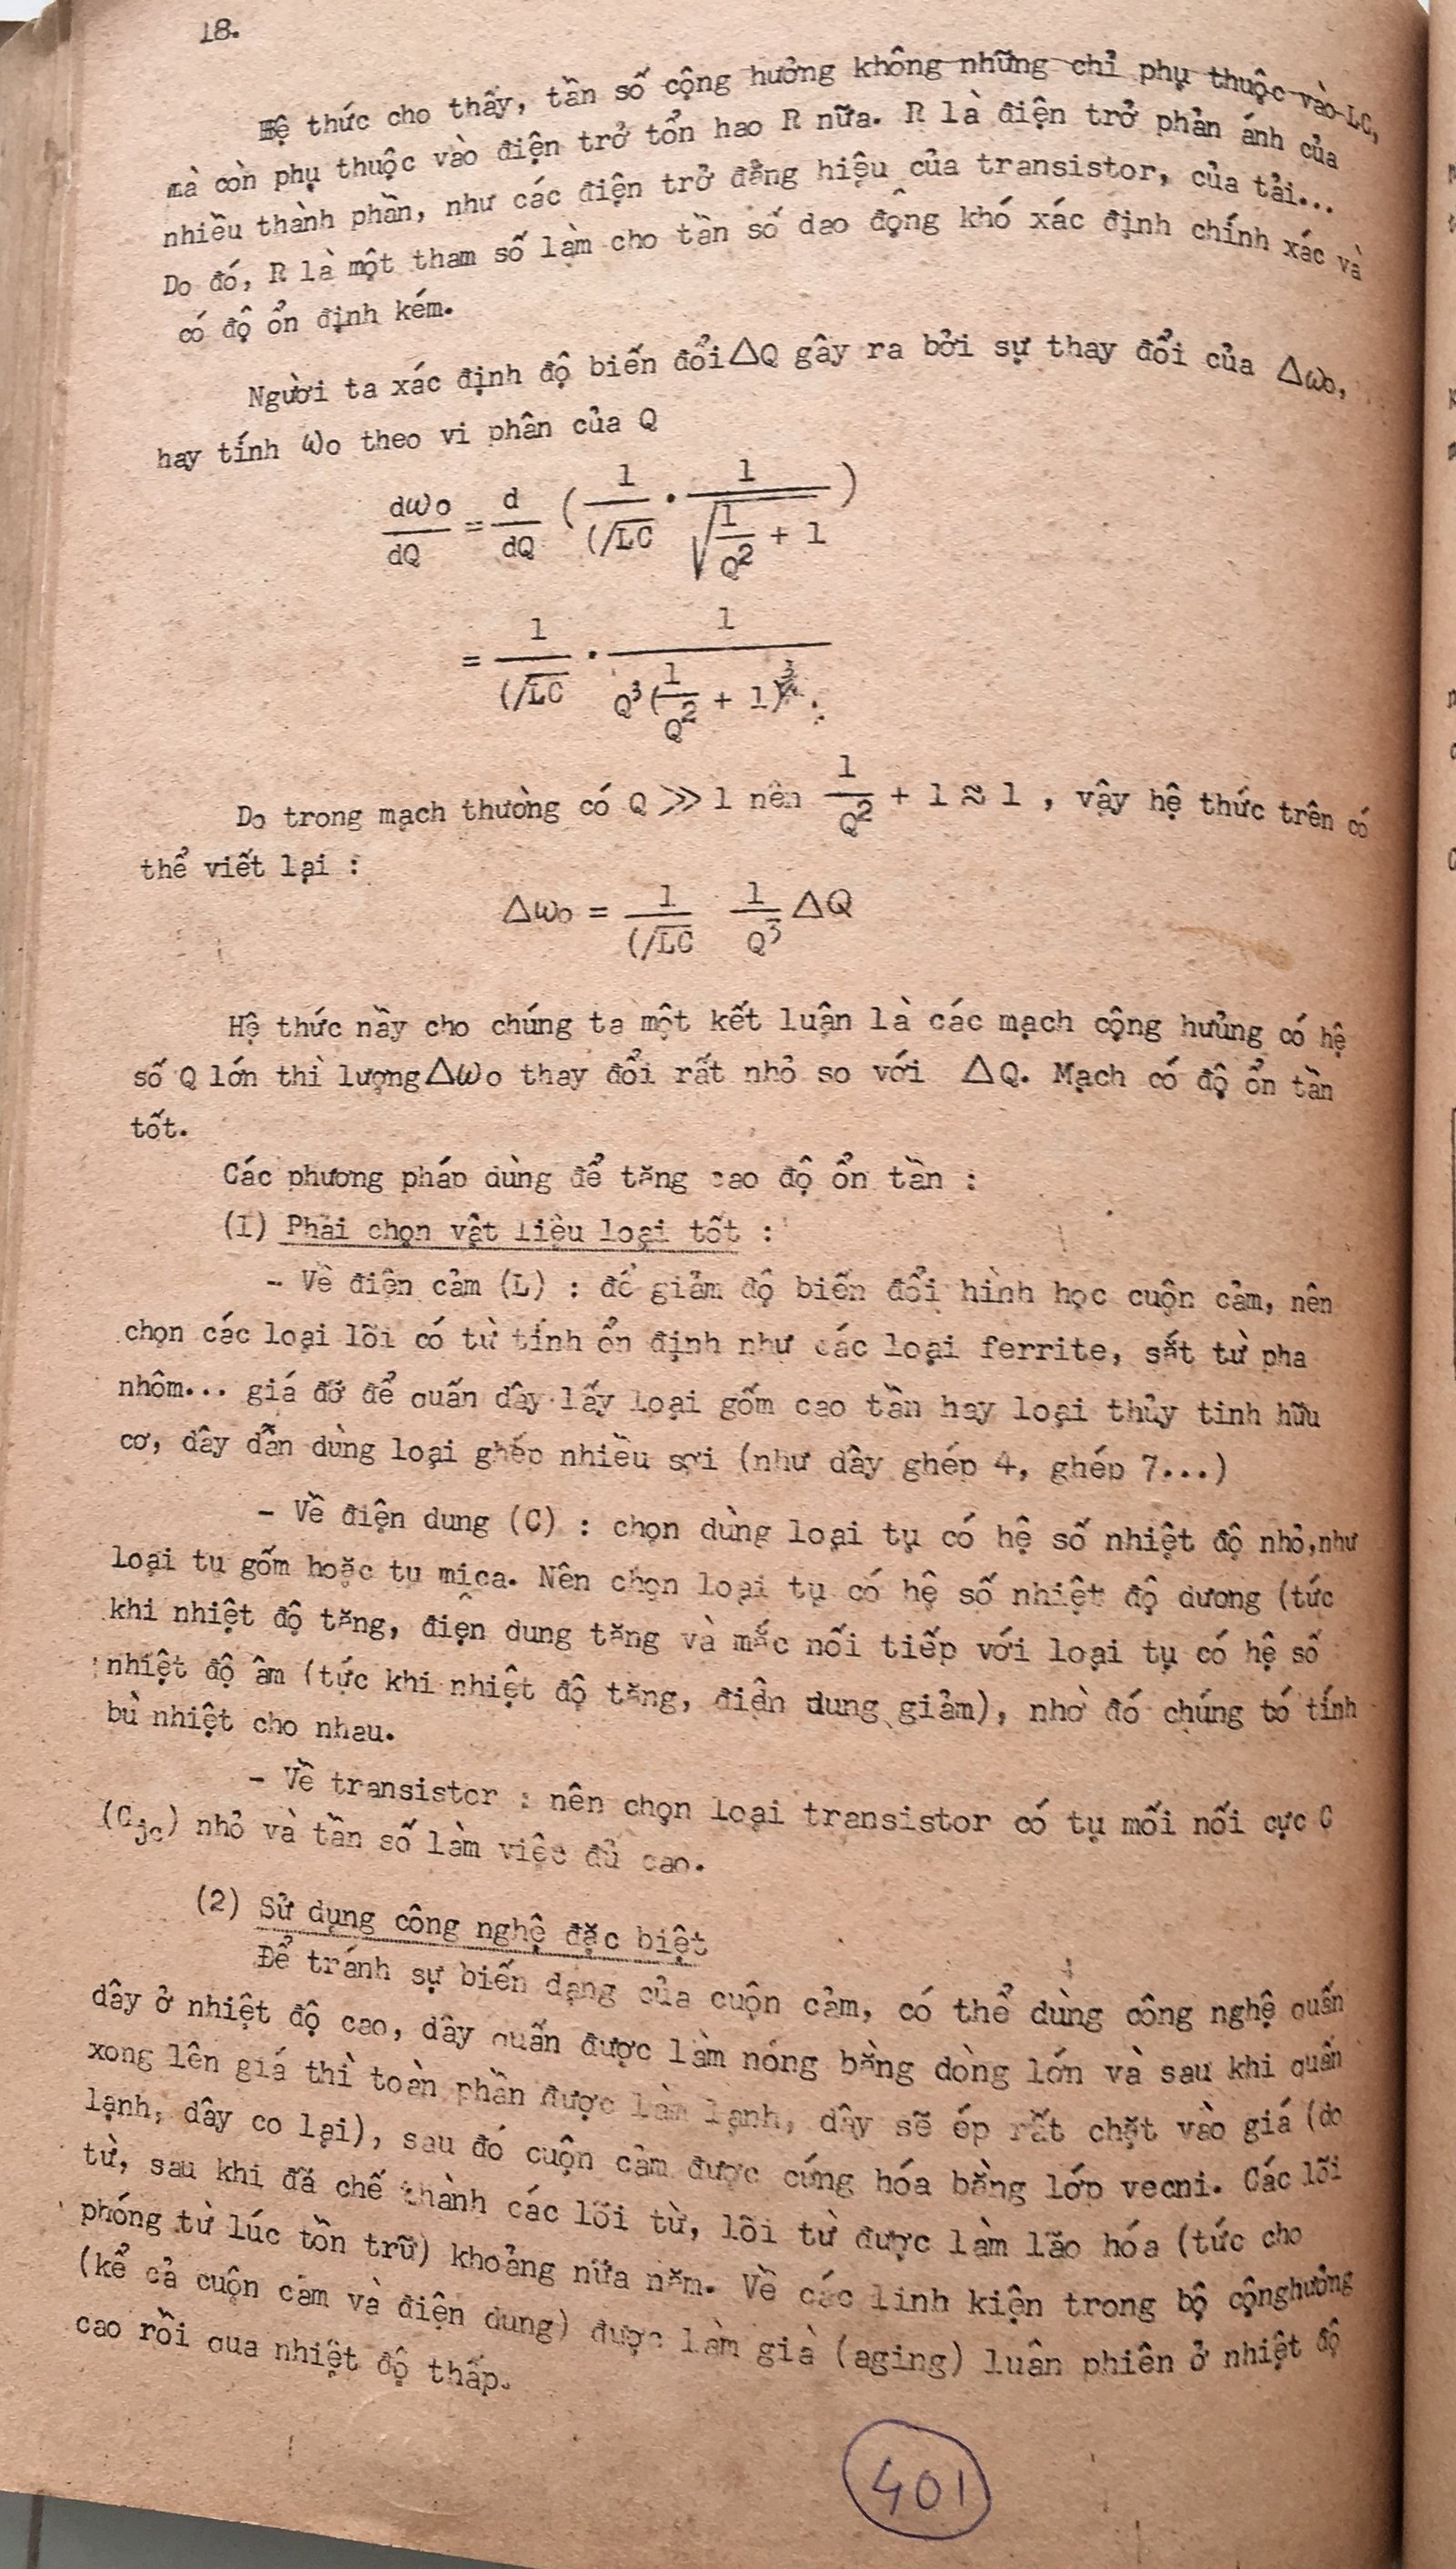 18.
Hệ thức cho thấy, tần số cộng hưởng không những chỉ phụ thuộc vào LC,
mà còn phụ thuộc vào điện trở tổn hao R nữa. R là điện trở phản ánh của
nhiều thành phần, như các điện trở đẳng hiệu của transistor, của tải...
Do đó, R là một tham số làm cho tần số dao động khó xác định chính xác và
có độ ổn định kém.
Người ta xác định độ biến đổi ΔQ gây ra bởi sự thay đổi của Δωo,
hay tính ωo theo vi phân của Q
dωo/dQ = d/dQ (1/√LC . 1/√(1/Q² + 1))
= 1/√LC . 1/(Q³(1/Q² + 1)^3/2)
Do trong mạch thường có Q >> 1 nên 1/Q² + 1 ≈ 1 , vậy hệ thức trên có
thể viết lại :
Δωo = 1/√LC 1/Q³ ΔQ
Hệ thức nầy cho chúng ta một kết luận là các mạch cộng hưủng có hệ
số Q lớn thì lượng Δωo thay đổi rất nhỏ so với ΔQ. Mạch có độ ổn tần
tốt.
Các phương pháp dùng để tăng cao độ ổn tần :
(1) Phải chọn vật liệu loại tốt :
- Về điện cảm (L) : để giảm độ biến đổi hình học cuộn cảm, nên
chọn các loại lõi có từ tính ổn định như các loại ferrite, sắt từ pha
nhôm... giá đỡ để quấn dây lấy loại gốm cao tần hay loại thủy tinh hữu
cơ, dây dẫn dùng loại ghép nhiều sợi (như dây ghép 4, ghép 7...)
- Về điện dung (C) : chọn dùng loại tụ có hệ số nhiệt độ nhỏ,như
loại tụ gốm hoặc tụ mica. Nên chọn loại tụ có hệ số nhiệt độ dương (tức
khi nhiệt độ tăng, điện dung tăng và mắc nối tiếp với loại tụ có hệ số
nhiệt độ âm (tức khi nhiệt độ tăng, điện dung giảm), nhờ đó chúng tó tính
bù nhiệt cho nhau.
- Về transistor : nên chọn loại transistor có tụ mối nối cực C
(Cjc) nhỏ và tần số làm việc đủ cao.
(2) Sử dụng công nghệ đặc biệt
Để tránh sự biến dạng của cuộn cảm, có thể dùng công nghệ quấn
dây ở nhiệt độ cao, dây quấn được làm nóng bằng dòng lớn và sau khi quấn
xong lên giá thì toàn phần được làm lạnh, dây sẽ ép rất chặt vào giá (do
lạnh, dây co lại), sau đó cuộn cảm được cứng hóa bằng lớp vecni. Các lõi
từ, sau khi đã chế thành các lõi từ, lõi từ được làm lão hóa (tức cho
phóng từ lúc tồn trữ) khoảng nửa năm. Về các linh kiện trong bộ cộnghưởng
(kể cả cuộn cảm và điện dung) được làm già (aging) luân phiên ở nhiệt độ
cao rồi qua nhiệt độ thấp.
401